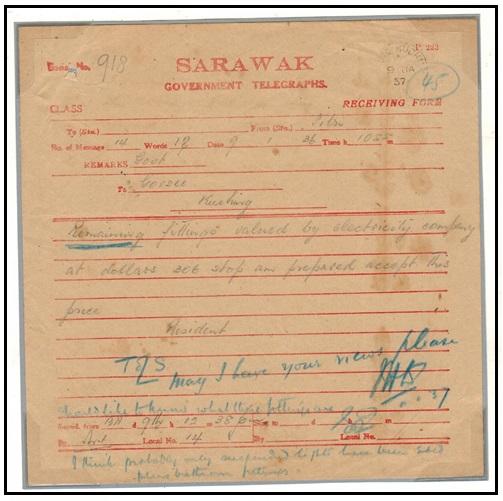 Serial No. 918
P. 223
SARAWAK
GOVERNMENT TELEGRAPHS.
45
CLASS
RECEIVING FORM
To (Stn.) From (Stn.) Sibu
No. of Message 14 Words 18 Date 9 1 Time h 1025 m
REMARKS Govt
To
Kuching
Remaining fittings valued by electricity company
at dollars 306 stop am prepared accept this
price
Resident
T&S may I have your views please
37
should like to know what these fittings are
d h 12 m 35 d h m
By Local No. 14 By Local No.
I think probably only suspended lights have been
plus bathroom fittings.